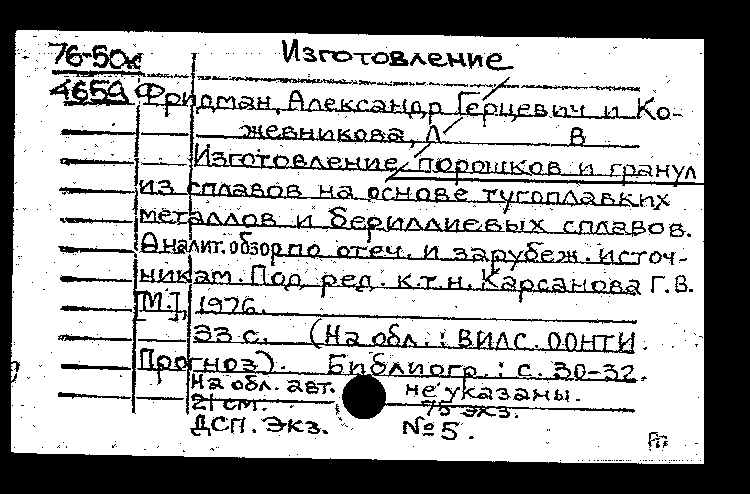 76-50к Изготовление
4659 Фридман, Александр Герцевич и Ко-
жевникова, Л. В
Изготовление порошков и гранул
из сплавов на основе тугоплавких
металлов и бериллиевых сплавов.
Аналит. обзор по отеч. и зарубеж. источ-
никам. Под ред. к.т.н. Карсанова Г.В.
[М.], 1976.
33 с. (На обл.: ВИЛС. ООНТИ.
Прогноз). Библиогр.: с. 30-32.
На обл. авт. не указаны.
21 см. 75 экз.
ДСП. Экз. №5.